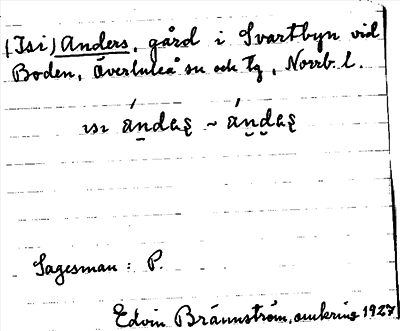 (Isi) Anders, gård i Svartbyn vid
Boden, Överluleå sn och tg, Norrb. l.
ısı ándaş ~ ándaş
Sagesman: P.
Edvin Brännström, omkring 1927